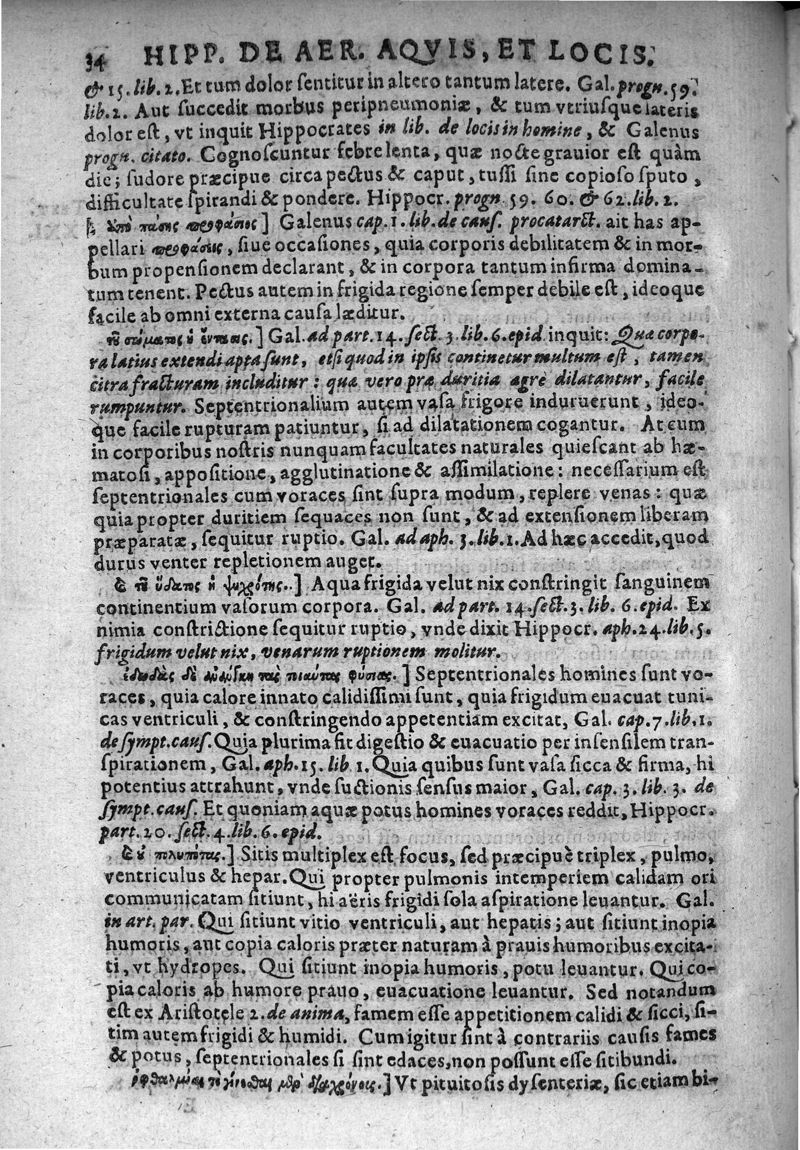 34 HIPP. DE AER. AQVIS, ET LOCIS.
& 15. lib. 2. Et tum dolor ſentitur in altero tantum latere. Gal. progn. 59.
lib. 2. Aut ſuccedit morbus peripneumoniæ, & tum vtriuſque lateris
dolor eſt, vt inquit Hippocrates in lib. de locis in homine, & Galenus
progn. citato. Cognoſcuntur febre lenta, quæ nocte grauior eſt quàm
die; ſudore præcipue circa pectus & caput, tuſſi ſine copioſo ſputo,
difficultate ſpirandi & pondere. Hippocr. progn. 59. 60. & 62. lib. 2.
ὑπὸ πάσης προφάσιος] Galenus cap. 1. lib. de cauſ. procatarct. ait has ap-
pellari προφάσεις, ſiue occaſiones, quia corporis debilitatem & in mor-
bum propenſionem declarant, & in corpora tantum infirma domina-
tum tenent. Pectus autem in frigida regione ſemper debile eſt, ideoque
facile ab omni externa cauſa læditur.
] Gal. ad part. 14. ſect. 3. lib. 6. epid. inquit: Quæ corpo-
ra latius extendi apta ſunt, etſi quod in ipſis continetur multum eſt, tamen
citra fracturam includitur: quæ vero præ duritia ægre dilatantur, facile
rumpuntur. Septentrionalium autem vaſa frigore induruerunt, ideo-
que facile rupturam patiuntur, ſi ad dilatationem cogantur. At cum
in corporibus noſtris nunquam facultates naturales quieſcant ab hæ-
matoſi, appoſitione, agglutinatione & aſſimilatione: neceſſarium eſt
ſeptentrionales cum voraces ſint ſupra modum, replere venas: quæ
quia propter duritiem ſequaces non ſunt, & ad extenſionem liberam
præparatæ, ſequitur ruptio. Gal. ad aph. 3. lib. 1. Ad hæc accedit, quod
durus venter repletionem auget.
& τοῦ ὕδατος ἡ ψυχρότης.] Aqua frigida velut nix conſtringit ſanguinem
continentium vaſorum corpora. Gal. ad part. 14. ſect. 3. lib. 6. epid. Ex
nimia conſtrictione ſequitur ruptio, vnde dixit Hippocr. aph. 24. lib. 5.
frigidum velut nix, venarum ruptionem molitur.
ἐδωδοὺς δὲ ἀνάγκη τὰς τοιαύτας φύσιας.] Septentrionales homines ſunt vo-
races, quia calore innato calidiſſimi ſunt, quia frigidum euacuat tuni-
cas ventriculi, & conſtringendo appetentiam excitat, Gal. cap. 7. lib. 1.
de ſympt. cauſ. Quia plurima fit digeſtio & euacuatio per inſenſilem tran-
ſpirationem, Gal. aph. 15. lib. 1. Quia quibus ſunt vaſa ſicca & firma, hi
potentius attrahunt, vnde ſuctionis ſenſus maior, Gal. cap. 3. lib. 3. de
ſympt. cauſ. Et quoniam aquæ potus homines voraces reddit, Hippocr.
part. 20. ſect. 4. lib. 6. epid.
& οὐ πολυπότας.] Sitis multiplex eſt focus, ſed præcipuè triplex, pulmo,
ventriculus & hepar. Qui propter pulmonis intemperiem calidam ori
communicatam ſitiunt, hi aëris frigidi ſola aſpiratione leuantur. Gal.
in art. par. Qui ſitiunt vitio ventriculi, aut hepatis; aut ſitiunt inopia
humoris, aut copia caloris præter naturam à prauis humoribus excita-
ti, vt hydropes. Qui ſitiunt inopia humoris, potu leuantur. Qui co-
pia caloris ab humore prauo, euacuatione leuantur. Sed notandum
eſt ex Ariſtotele 2. de anima, famem eſſe appetitionem calidi & ſicci, ſi-
tim autem frigidi & humidi. Cum igitur ſint à contrariis cauſis fames
& potus, ſeptentrionales ſi ſint edaces, non poſſunt eſſe ſitibundi.
] Vt pituitoſis dyſenteriæ, ſic etiam bi-